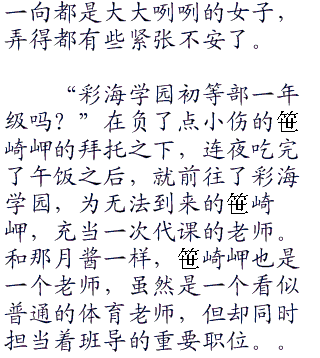 一向都是大大咧咧的女子，
弄得都有些紧张不安了。
“彩海学园初等部一年
级吗？”在负了点小伤的笹
崎岬的拜托之下，连夜吃完
了午饭之后，就前往了彩海
学园，为无法到来的笹崎
岬，充当一次代课的老师。
和那月酱一样，笹崎岬也是
一个老师，虽然是一个看似
普通的体育老师，但却同时
担当着班导的重要职位。。